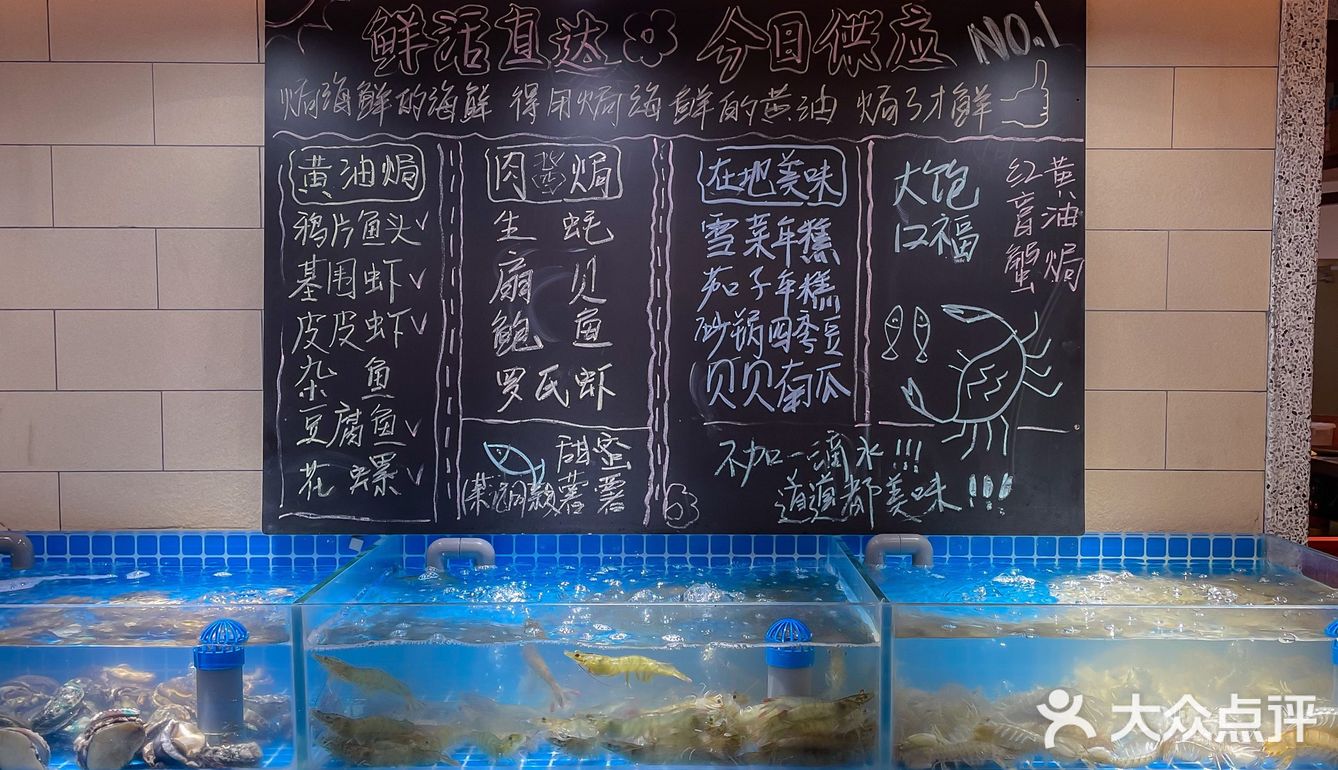 鲜活直达 今日供应 NO.1
焗海鲜的海鲜 得用焗海鲜的黄油 焗了才鲜
黄油焗
鸦片鱼头√
基围虾√
皮皮虾√
杂鱼
豆腐鱼√
花螺√
肉酱焗
生蚝
扇贝
鲍鱼
罗氏虾
甜蜜
薯薯
在地美味
雪菜年糕
茄子年糕
砂锅四季豆
贝贝南瓜
不加一滴水!!!
道道都美味!!!
大饱
口福
黄油焗
红膏蟹
大众点评